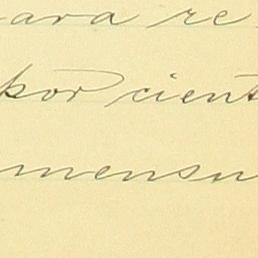 ara re
por cient
mensu